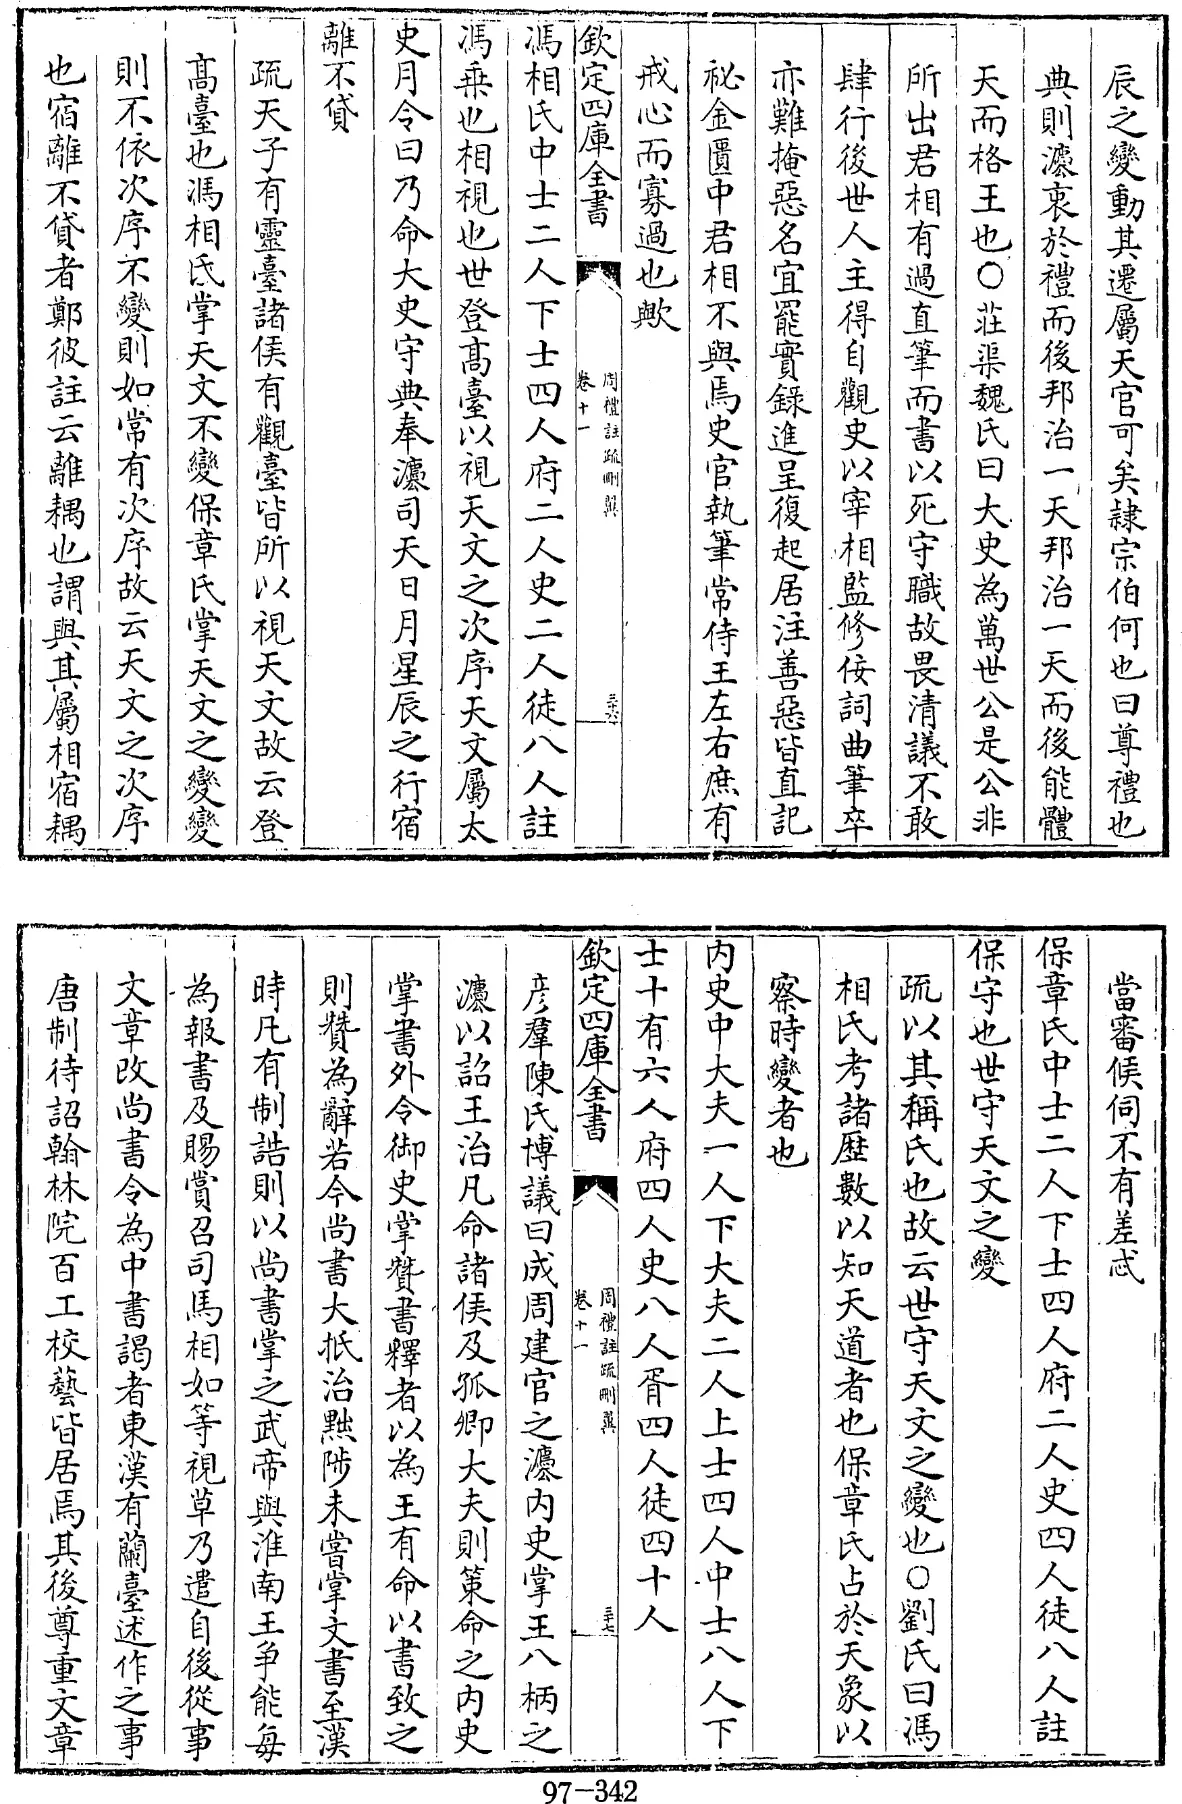 辰之變動其遷屬天官可矣隷宗伯何也曰尊禮也
典則灋衷於禮而後邦治一天邦治一天而後能體
天而格王也○莊渠魏氏曰大史為萬世公是公非
所出君相有過直筆而書以死守職故畏清議不敢
肆行後世人主得自觀史以宰相監修佞詞曲筆卒
亦難掩惡名宜罷實錄進呈復起居注善惡皆直記
祕金匱中君相不與焉史官執筆常侍王左右庶有
戒心而寡過也歟
欽定四庫全書
周禮註疏刪翼
卷十一
三十六
馮相氏中士二人下士四人府二人史二人徒八人註
馮乗也相視也世登髙臺以視天文之次序天文屬太
史月令曰乃命大史守典奉灋司天日月星辰之行宿
離不貸
疏天子有靈臺諸侯有觀臺皆所以視天文故云登
髙臺也馮相氏掌天文不變保章氏掌天文之變變
則不依次序不變則如常有次序故云天文之次序
也宿離不貸者鄭彼註云離耦也謂與其屬相宿耦
當審侯伺不有差忒
保章氏中士二人下士四人府二人史四人徒八人註
保守也世守天文之變
疏以其稱氏也故云世守天文之變也○劉氏曰馮
相氏考諸歴數以知天道者也保章氏占於天象以
察時變者也
内史中大夫一人下大夫二人上士四人中士八人下
士十有六人府四人史八人胥四人徒四十人
欽定四庫全書
周禮註疏刪翼
卷十一
三十七
彦羣陳氏博議曰成周建官之灋内史掌王八柄之
灋以詔王治凡命諸侯及孤卿大夫則策命之内史
掌書外令御史掌贊書釋者以為王有命以書致之
則贊為辭若今尚書大抵治黜陟未嘗掌文書至漢
時凡有制誥則以尚書掌之武帝與淮南王爭能每
為報書及賜賞召司馬相如等視草乃遣自後從事
文章改尚書令為中書謁者東漢有蘭臺述作之事
唐制待詔翰林院百工校藝皆居焉其後尊重文章
97-342